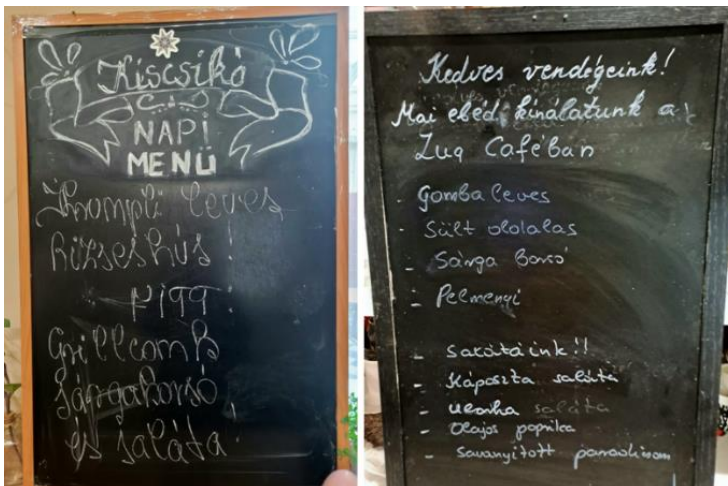 Kiscsikó
NAPI
MENÜ
Krompli leves
Rizseshús!
Grillcomb
sárgaborsó,
és saláta!
Kedves vendégeink!
Mai ebéd kínálatunk a
Zug Caféban
- Gomba leves
- Sült oldalas
- Sárga Borsó
- Pelmenyi
- salátáink!!
- Káposzta saláta
- uborka saláta
- Olajos paprika
- Savanyított paradicsom